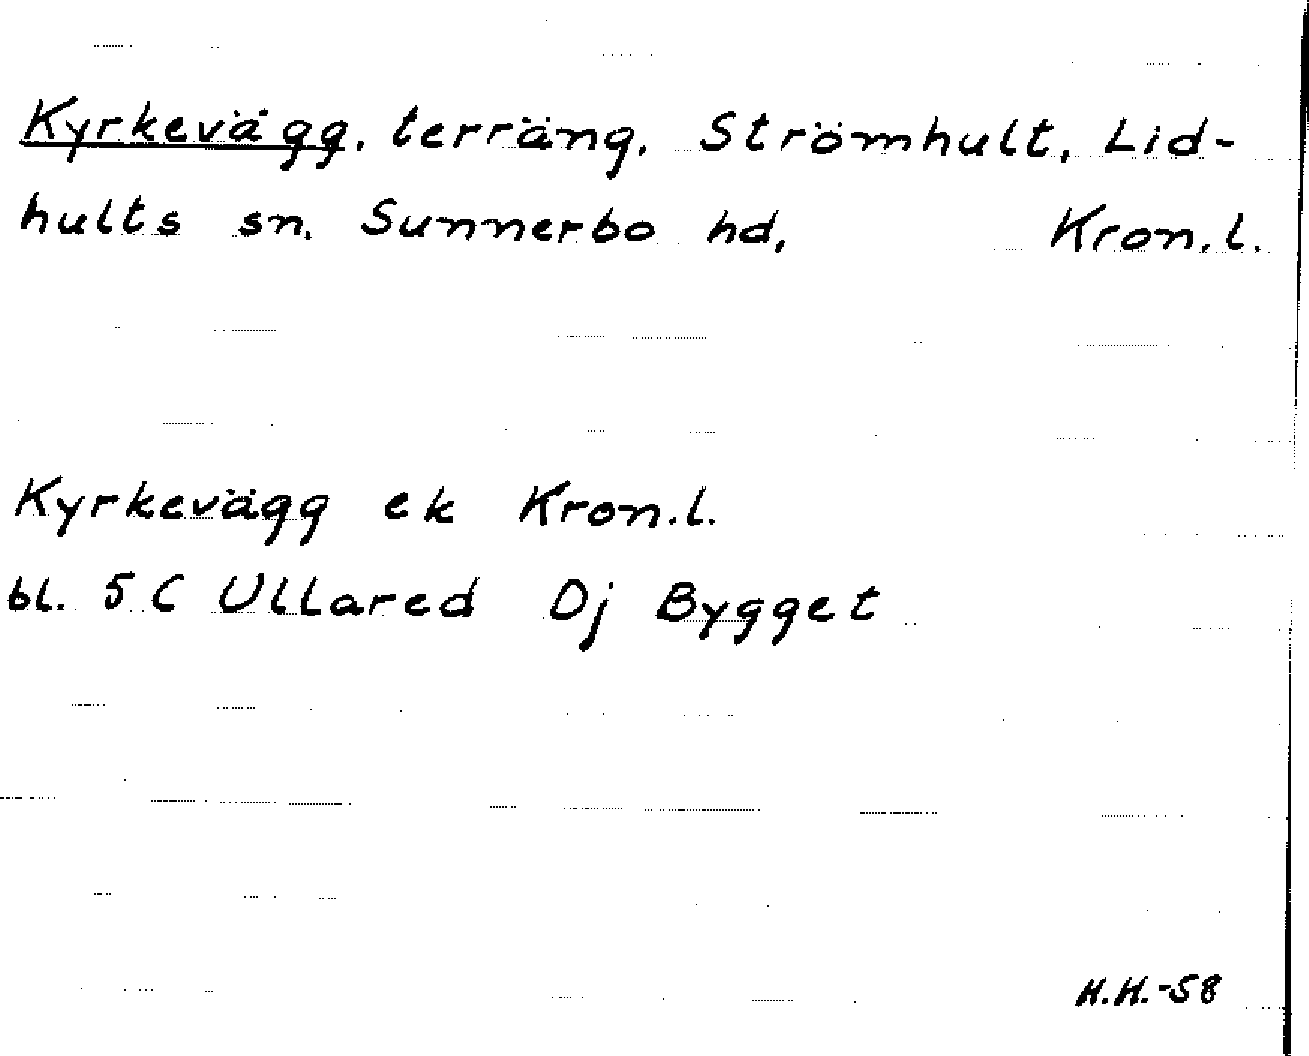 Kyrkevägg, terräng, Strömhult, Lid-
hults sn, Sunnerbo hd, Kron.l.
Kyrkevägg ek Kron.l.
bl. 5 C Ullared Dj Bygget
H.H.-58